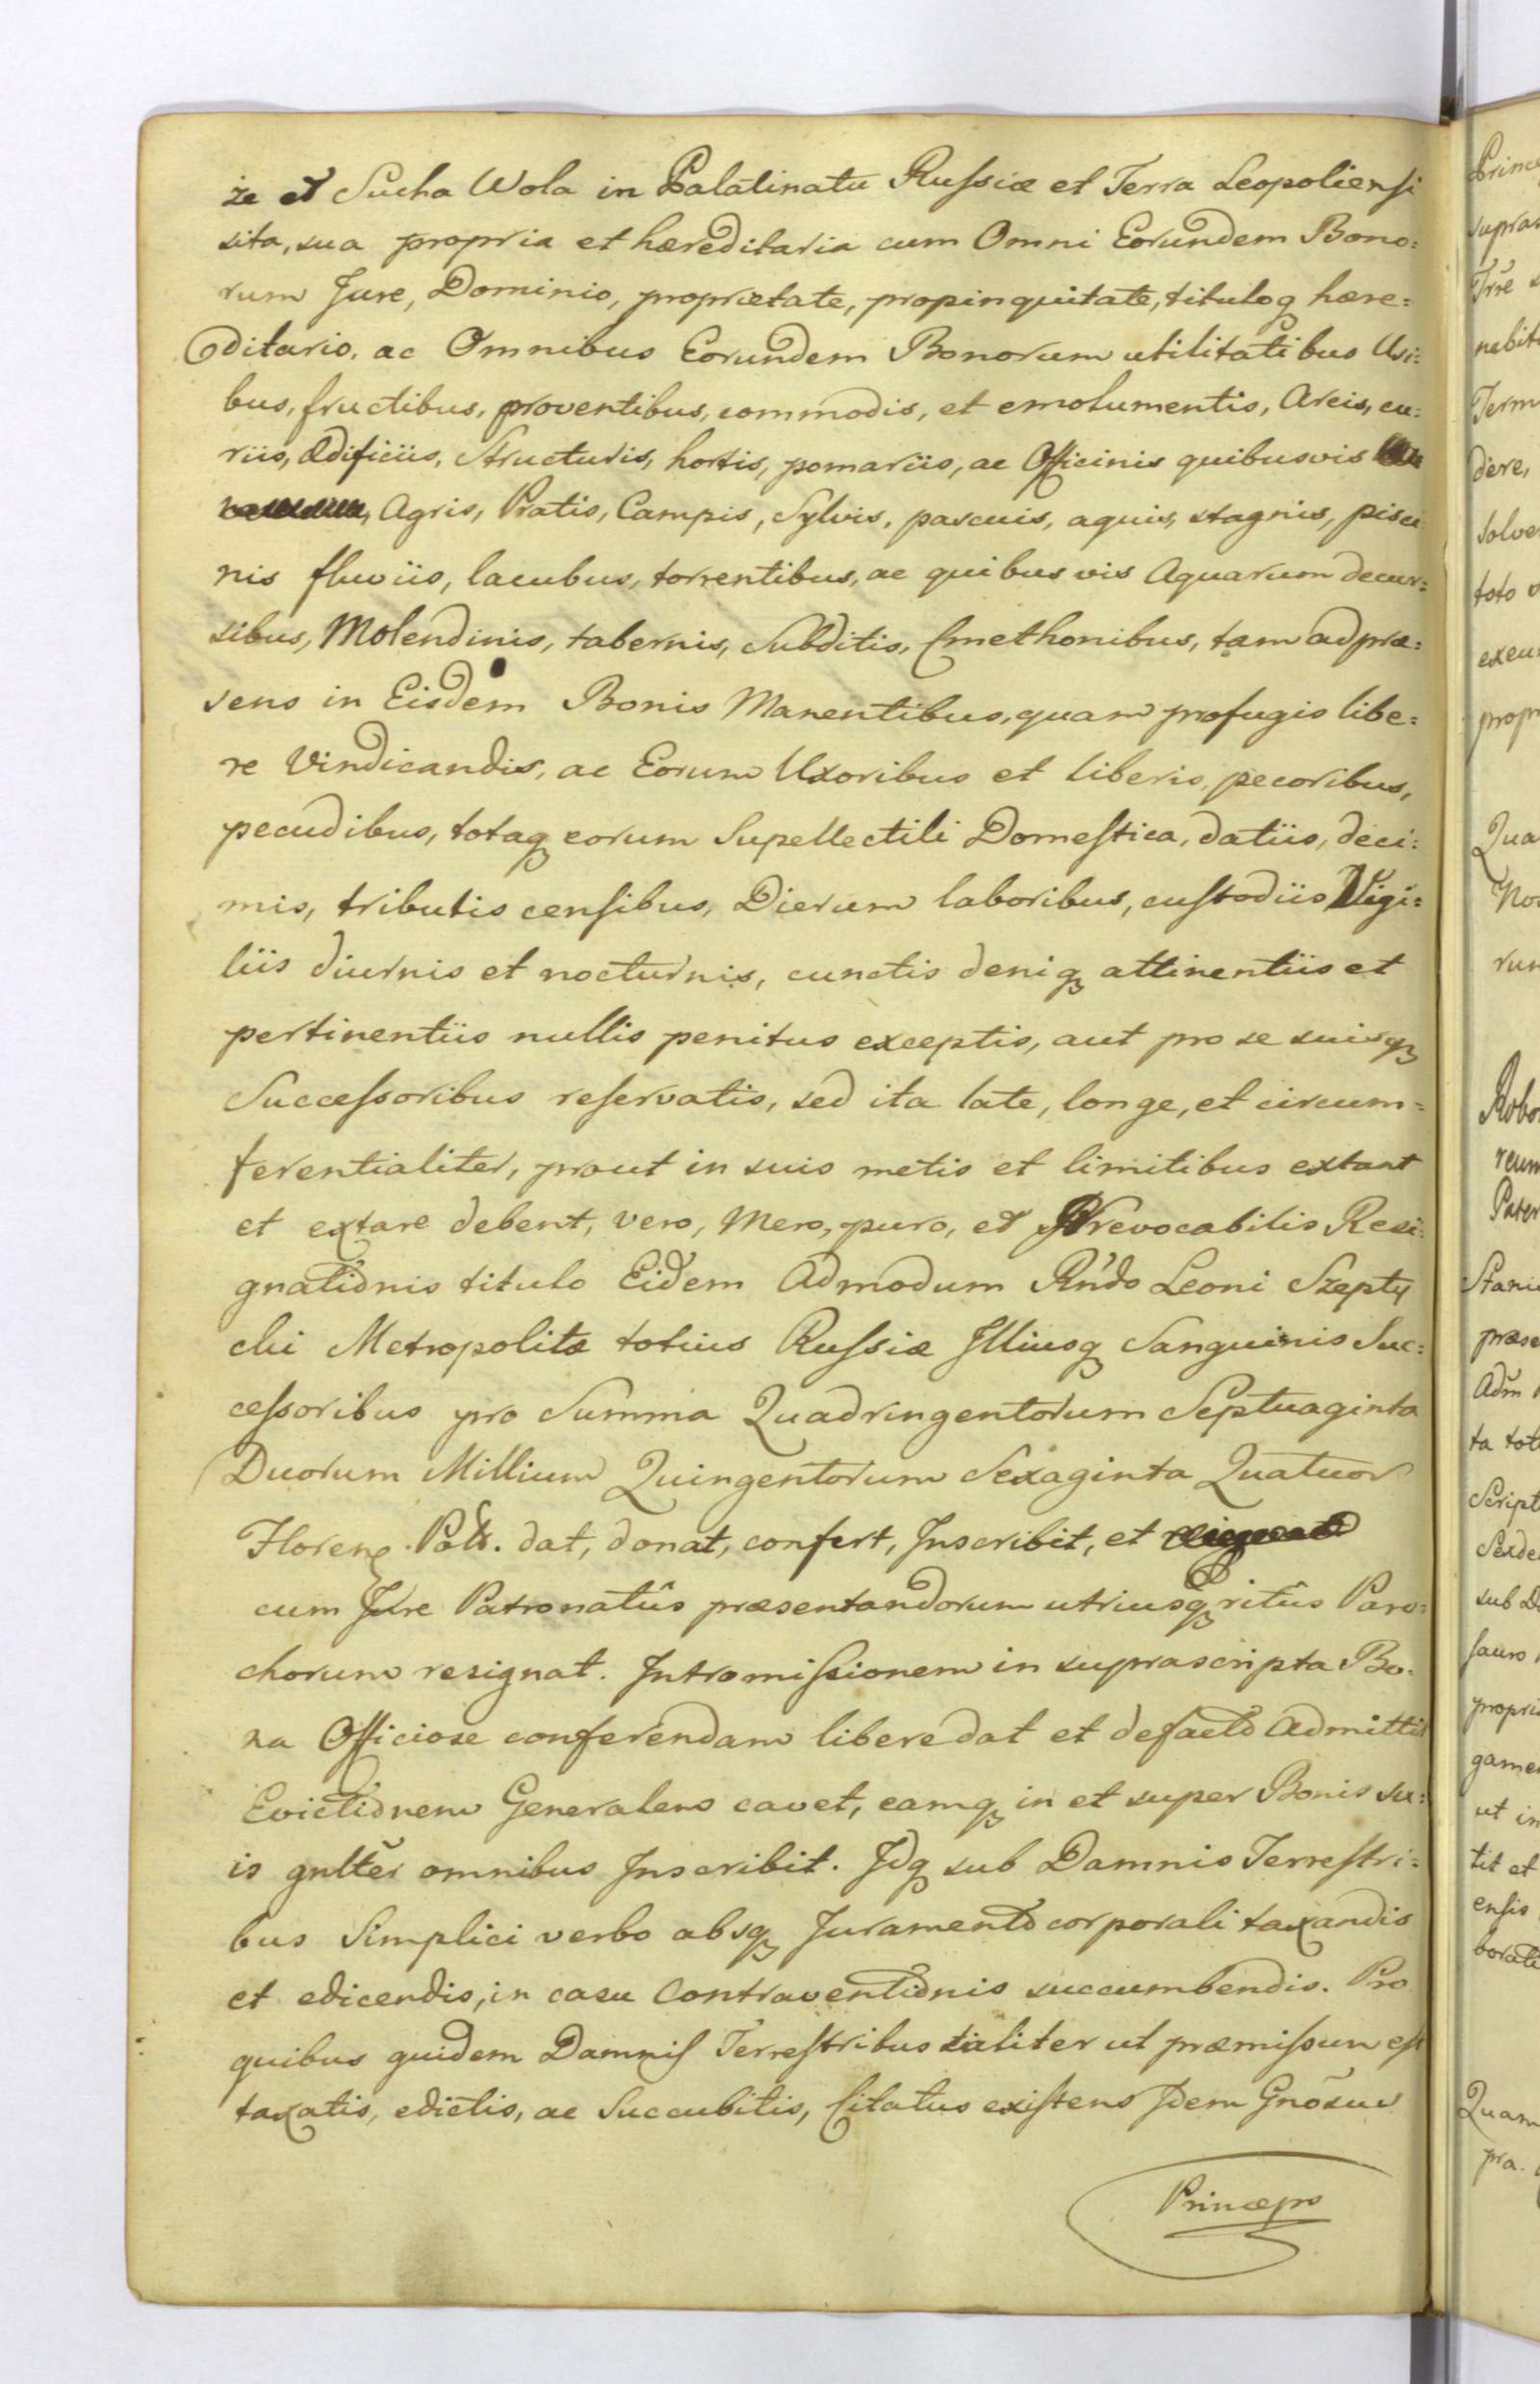 że et Sucha Wola in Palatinatu Russiæ et Terra Leopoliensi
sita, sua propria et hæreditaria cum Omni Eorundem Bono:
rum Jure, Dominio, proprietate, propinquitate, tituloq hære:
ditario, ac Omnibus Eorundem Bonorum utilitatibus Usi:
bus, fructibus, proventibus, commodis, et emolumentis, Areis, cu:
riis, Ædificiis, Structuris, hortis, pomariis, ac Officinis quibusvis
Agris, Pratis, Campis, Sylvis, pascuis, aquis, stagnis, pisci
nis fluviis, lacubus, torrentibus, ac quibus vis Aquarum decur:
sibus, Molendinis, tabernis, Subditis, Cmethonibus, tam ad præ:
sens in Eisdem Bonis Manentibus, quam profugis libe:
re Vindicandis, ac Eorum Uxoribus et liberis, pecoribus,
pecudibus, totaq eorum Supellectili Domestica, datiis, deci:
mis, tributis censibus, Dierum laboribus, custodiis Vigi:
liis diurnis et nocturnis, cunctis deniq attinentiis et
pertinentiis nullis penitus exceptis, aut pro se suisq
Successoribus reservatis, sed ita late, longe, et circum-
ferentialiter, prout in suis metis et limitibus extant
et extare debent, vero, Mero, puro, et Irrevocabilis Resi:
gnationis titulo Eidem Admodum Rńdo Leoni Szepty
cki Metropolitæ totius Russiæ Illiusq Sanguinis Suc:
cessoribus pro Summa Quadringentorum Septuaginta
Duorum Millium Quingentorum Sexaginta Quatuor
Floren. Poll. dat, donat, confert, Inscribit, et
cum Jure Patronatûs præsentandorum utriusq ritûs Paro:
chorum resignat. Intromissionem in suprascripta Bo:
na Officiose conferendam libere dat et defacto Admittit
Evictionem Generalem cavet, eamq in et super Bonis su:
is gnltěr omnibus Inscribit. Idq sub Damnis Terrestri:
bus Simplici verbo absq Juramento corporali taxandis
et edicendis, in casu Contraventionis succumbendis. Pro
quibus quidem Damnis Terrestribus taliter ut præmissum est
taxatis, edictis, ac Succubitis, Citatus existens Idem Gnõsus
Princeps